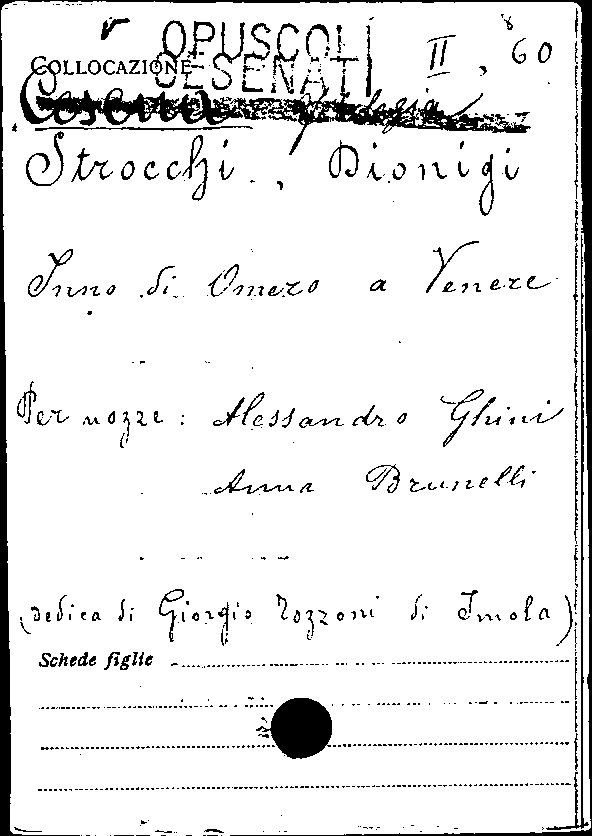 OPUSCOLI II, 8 60
COLLOCAZIONE CESENATI
Cesena
Strocchi, Dionigi
Inno di Omero a Venere
Per nozze: Alessandro Ghini
Anna Brunelli
(dedica di Giorgio Tozzoni di Imola)
Schede figlie